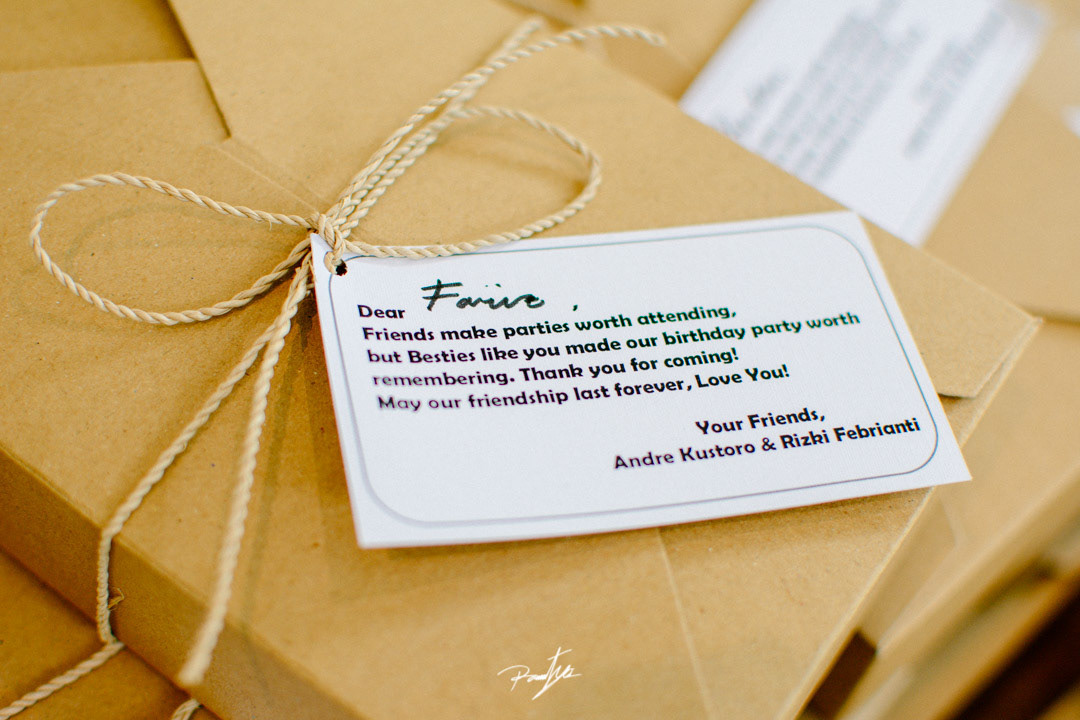 Dear Faiive ,
Friends make parties worth attending,
but Besties like you made our birthday party worth
remembering. Thank you for coming!
May our friendship last forever, Love You!
Your Friends,
Andre Kustoro & Rizki Febrianti